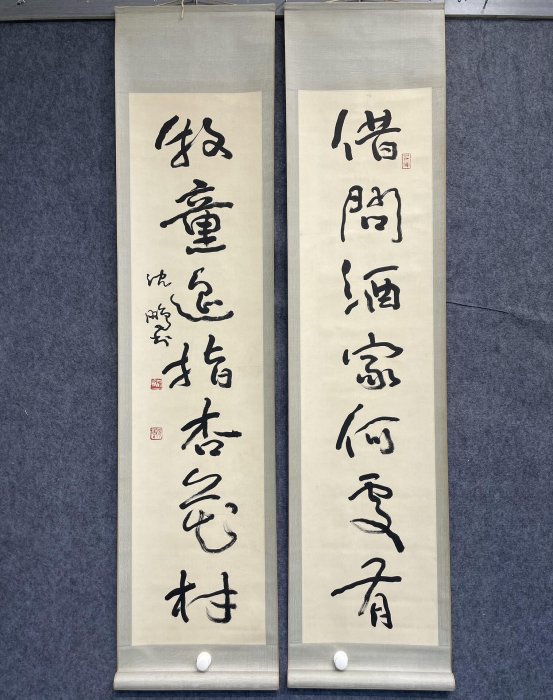 借問酒家何處有
牧童遥指杏花村
沈鵬書